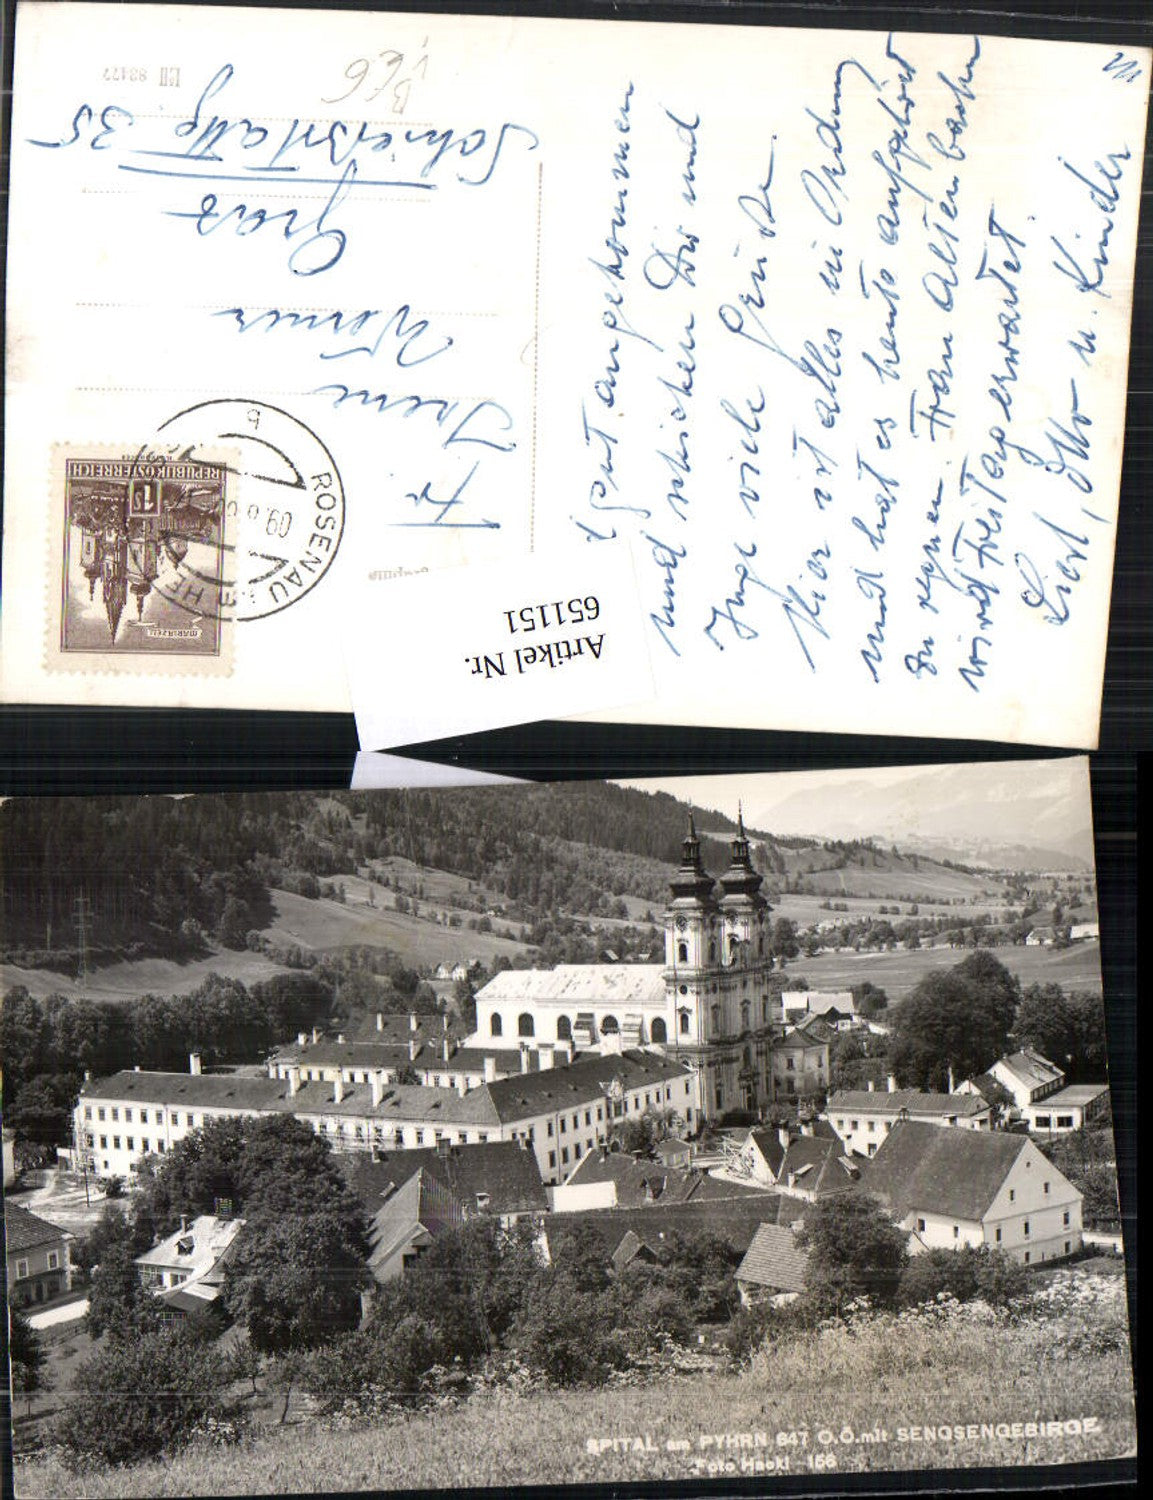 Gut angekommen
und schicken Dir und
Inge viele Grüße.
Hier ist alles in Ordnung
und hat es heute aufgehört
zu regnen. Frau Altenbach
wird Freitag erwartet.
Otto u. Kinder
Fr.
Irene
Werner
Graz
Schießstattg. 35
REPUBLIK ÖSTERREICH
1S
MARIAZELL
ROSENAU
Artikel Nr.
651151
SPITAL am PYHRN 647 Ö.Ö. mit SENGSENGEBIRGE
Foto Hackl 156